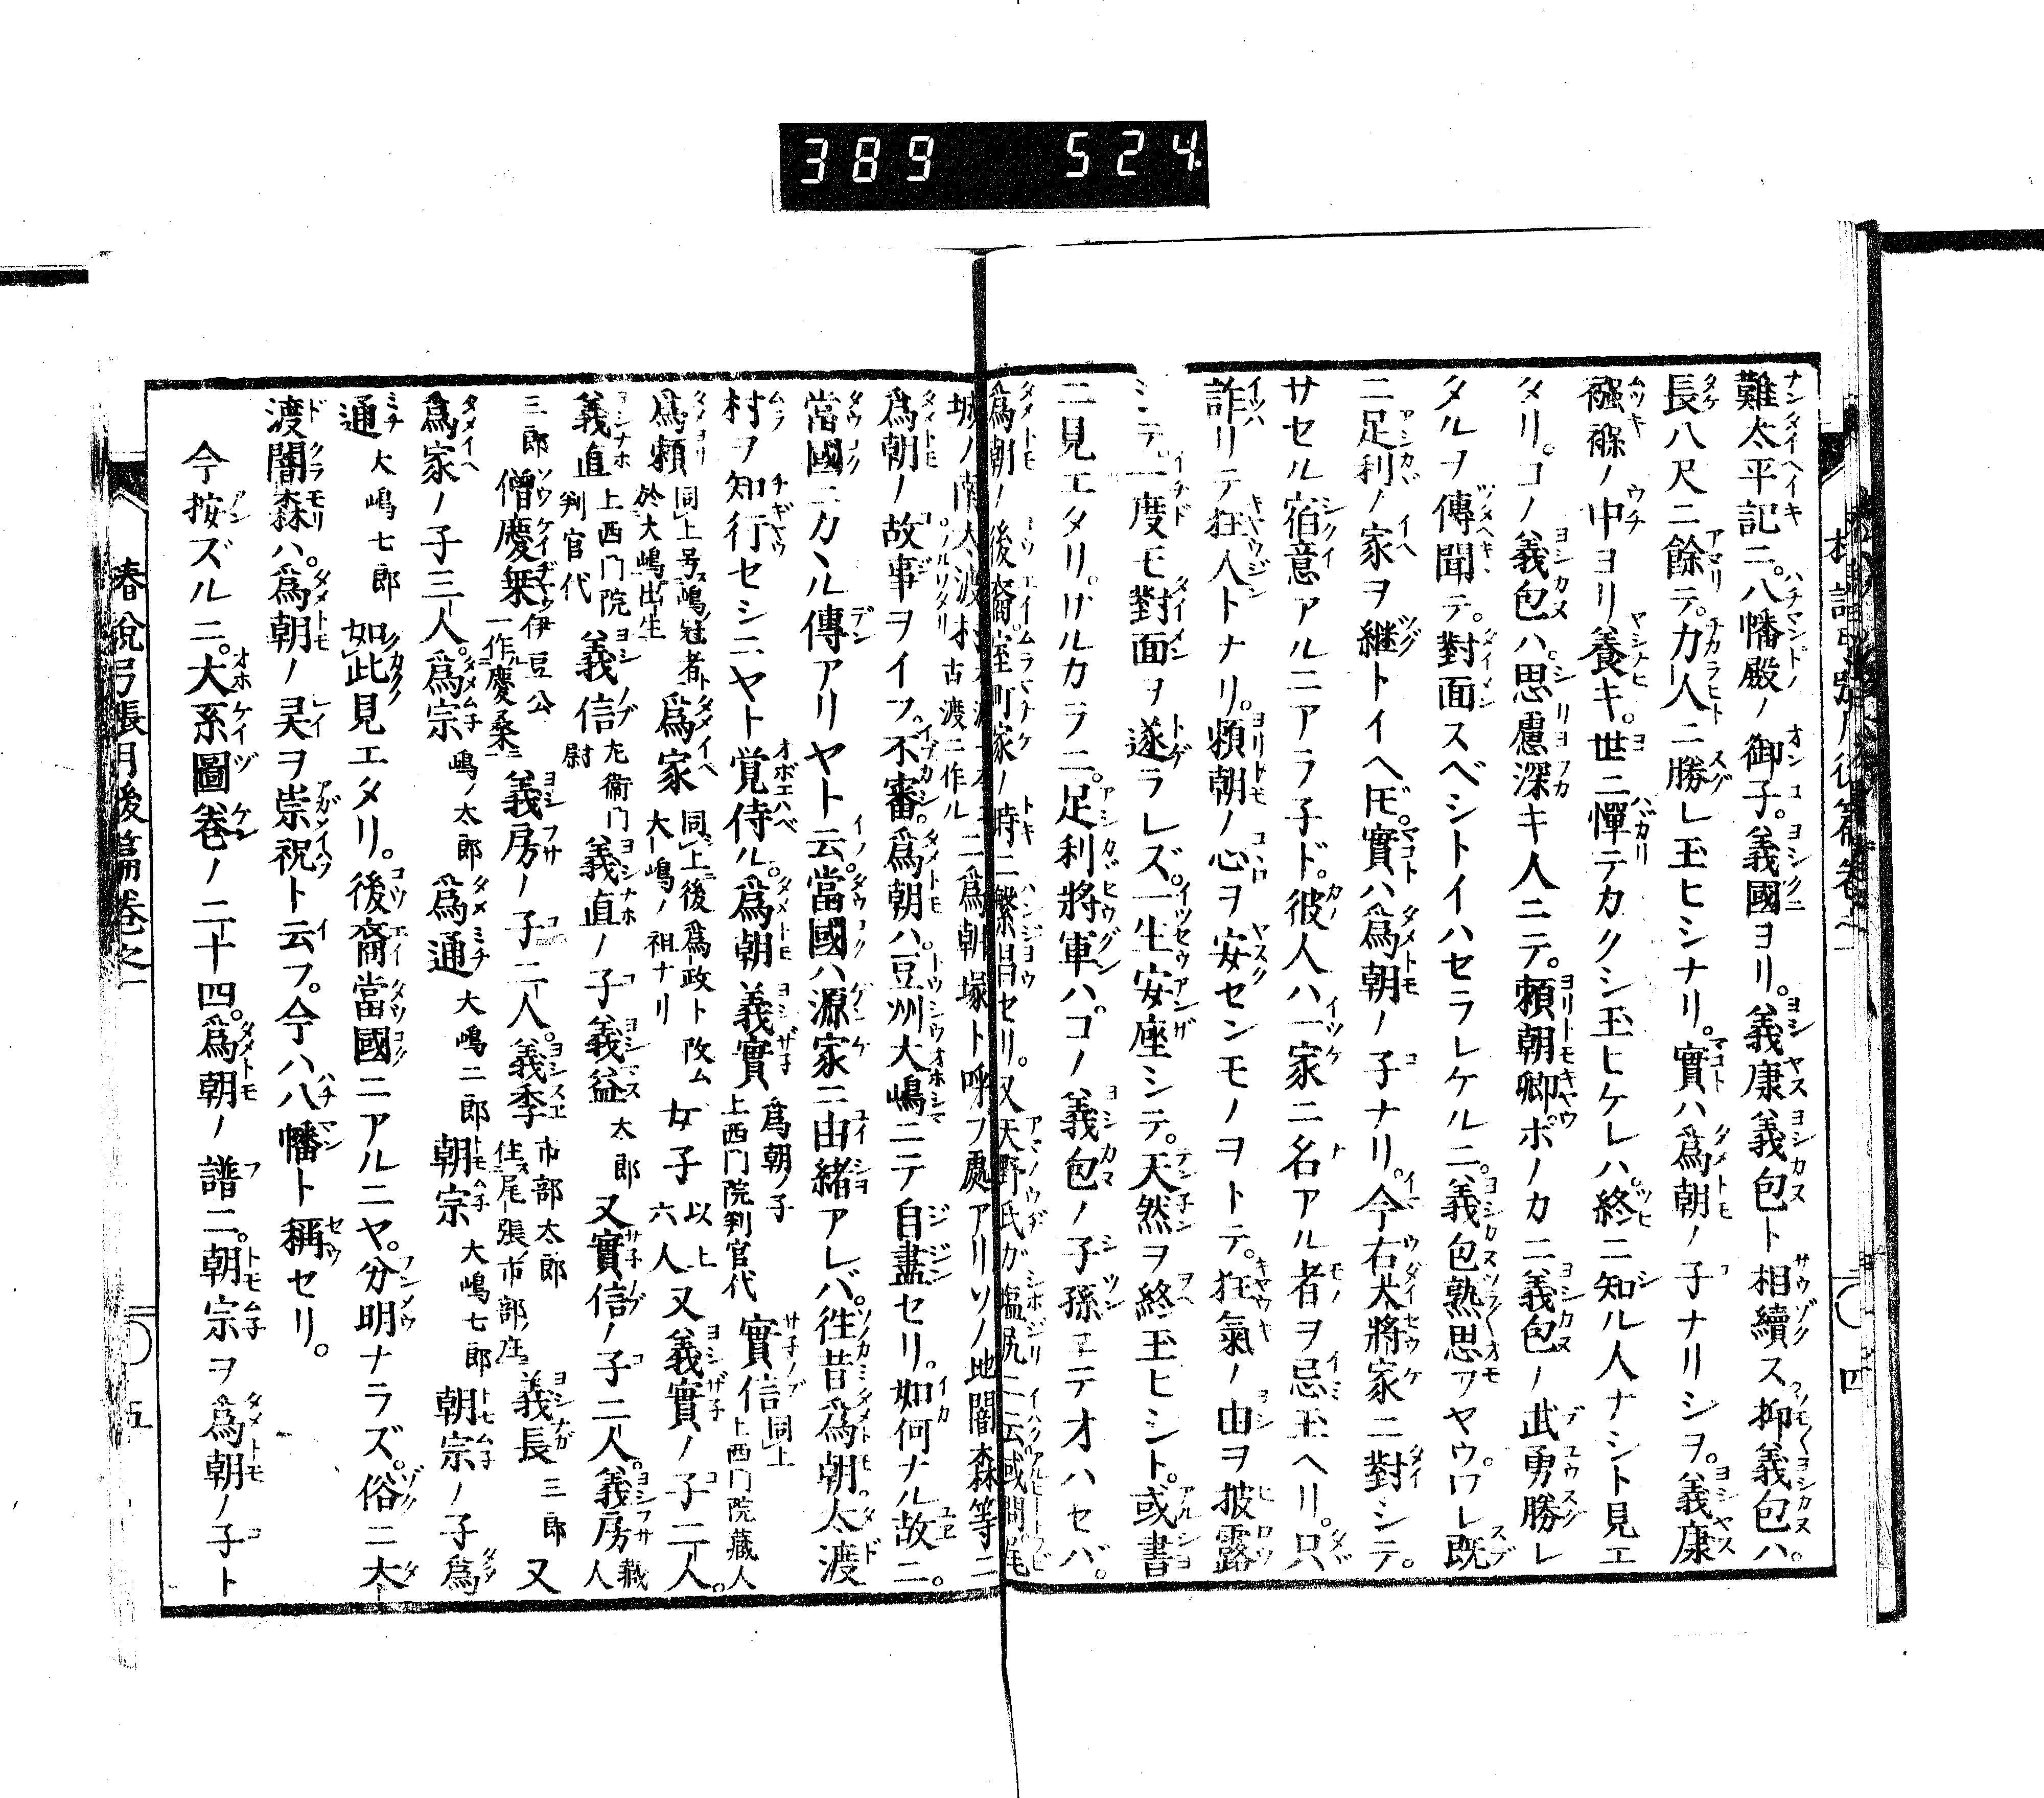 389 524.
難太平記ニ。八幡殿ノ御子。義國ヨリ。義康義包ト相續ス抑義包ハ。
長八尺ニ餘テ。力人ニ勝レ玉ヒシナリ。實ハ爲朝ノ子ナリシヲ。義康
襁褓ノ中ヨリ養キ。世ニ憚テカクシ玉ヒケレハ。終ニ知ル人ナシト見エ
タリ。コノ義包ハ。思慮深キ人ニテ。頼朝卿ホノカニ義包ノ武勇勝レ
タルヲ傳聞テ。對面スベシトイハセラレケルニ。義包熟思フヤウ。ワレ既
ニ足利ノ家ヲ継トイヘ𪜈。實ハ爲朝ノ子ナリ。今右大將家ニ對シテ。
サセル宿意アルニアラ子ド。彼人ハ一家ニ名アル者ヲ忌玉ヘリ。只
詐リテ狂人トナリ。頼朝ノ心ヲ安センモノヲトテ。狂氣ノ由ヲ披露
シテ。一度モ對面ヲ遂ラレズ。一生安座シテ。天然ヲ終玉ヒシト。或書
ニ見エタリ。サルカラニ。足利將軍ハ。コノ義包ノ子孫ニテオハセバ。
爲朝ノ後裔。室町家ノ時ニ繁昌セリ。又天野氏ガ塩尻ニ云或問尾
城ノ南大渡村古渡ニ作ルニ爲朝塚ト呼フ處アリソノ地闇森等ニ
爲朝ノ故事ヲイフ。不審。爲朝ハ豆州大嶋ニテ自盡セリ。如何ナル故ニ。
當國ニカヽル傳アリヤト云。當國ハ源家ニ由緒アレバ。徃昔爲朝大渡
村ヲ知行セシニヤト覚侍ル。爲朝義實爲朝ノ子上西門院判官代實信同上上西門院藏人
爲頼同上号嶋冠者於大嶋出生爲家同上後爲政ト改ム大嶋ノ祖ナリ女子以上六人又義實ノ子二人。
義直上西門院判官代義信左衛門尉義直ノ子義益太郎又實信ノ子二人。義房藏人
三郎僧慶乗伊豆公一作慶桑義房ノ子二人。義季市部太郎住尾張市部ノ庄義長三郎又
爲家ノ子三人。爲宗嶋ノ太郎爲通大嶋二郎朝宗大嶋七郎朝宗ノ子爲
通大嶋七郎如此見エタリ。後裔當國ニアルニヤ。分明ナラズ。俗ニ大
渡闇森ハ。爲朝ノ㚑ヲ崇祝ト云フ。今ハ八幡ト稱セリ。
今按ズルニ。大系圖巻ノ二十四。爲朝ノ譜ニ。朝宗ヲ爲朝ノ子ト
椿説弓張月後篇巻之一
五
四